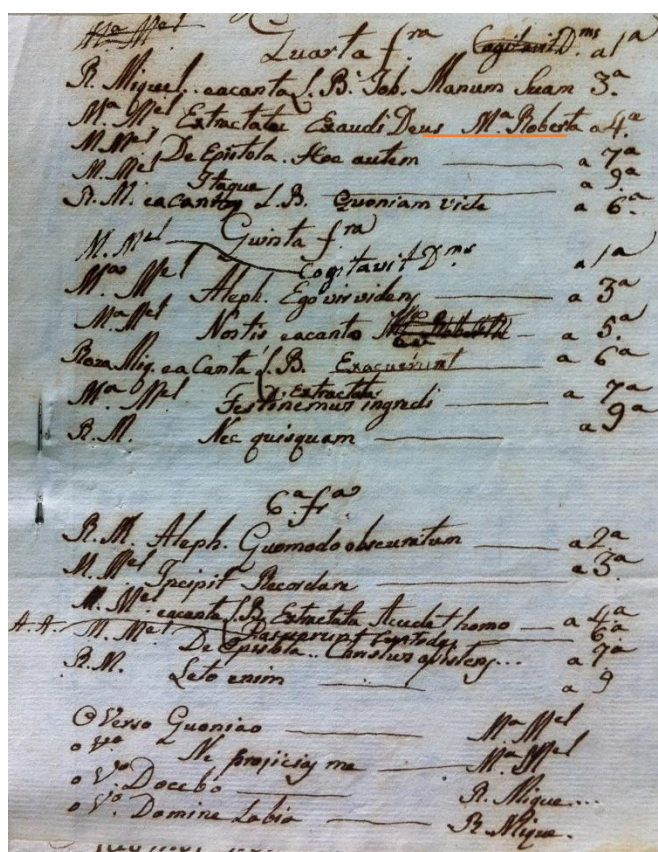 Mª Mel
Quarta f.ra Cogitavit D.ms a 1ª
R. Miguel. eacanta S. B. Job. Manum Suam 3ª
Mª Mel Extractatu Exaudi Deus Mª Roberta a 4ª
M. Mel De Epistola. Hoc autem a 7ª
M. Mel Itaque a 9ª
R. M. eacanta S. B. Quoniam vide a 6ª
Quinta f.ra
M. Mel Cogitavit D.ms a 1ª
Mª Mel Aleph. Ego vir videns a 3ª
Mª Mel Nostis eacanta a 5ª
Roza Mig. ea Canta S. B. Exacuerunt a 6ª
Mª Mel Extractatu
Festinemus ingredi a 7ª
R. M. Nec quisquam a 9ª
6ª f.ra
R. M. Aleph. Quomodo obscuratum a 2ª
M. Mel Incipit Recordare a 3ª
M. Mel eacanta S. B. Extractata Accedat homo a 4ª
A. A. 6ª
M. Mel De Epistola.. Christus assistens... a 7ª
R. M. Leto enim a 9
O Verso Quoniao Mª Mel
o Vº Ne projicias me Mª Mel
o Vº Docebo R. Migue...
o Vº. Domine Labia R. Migue.